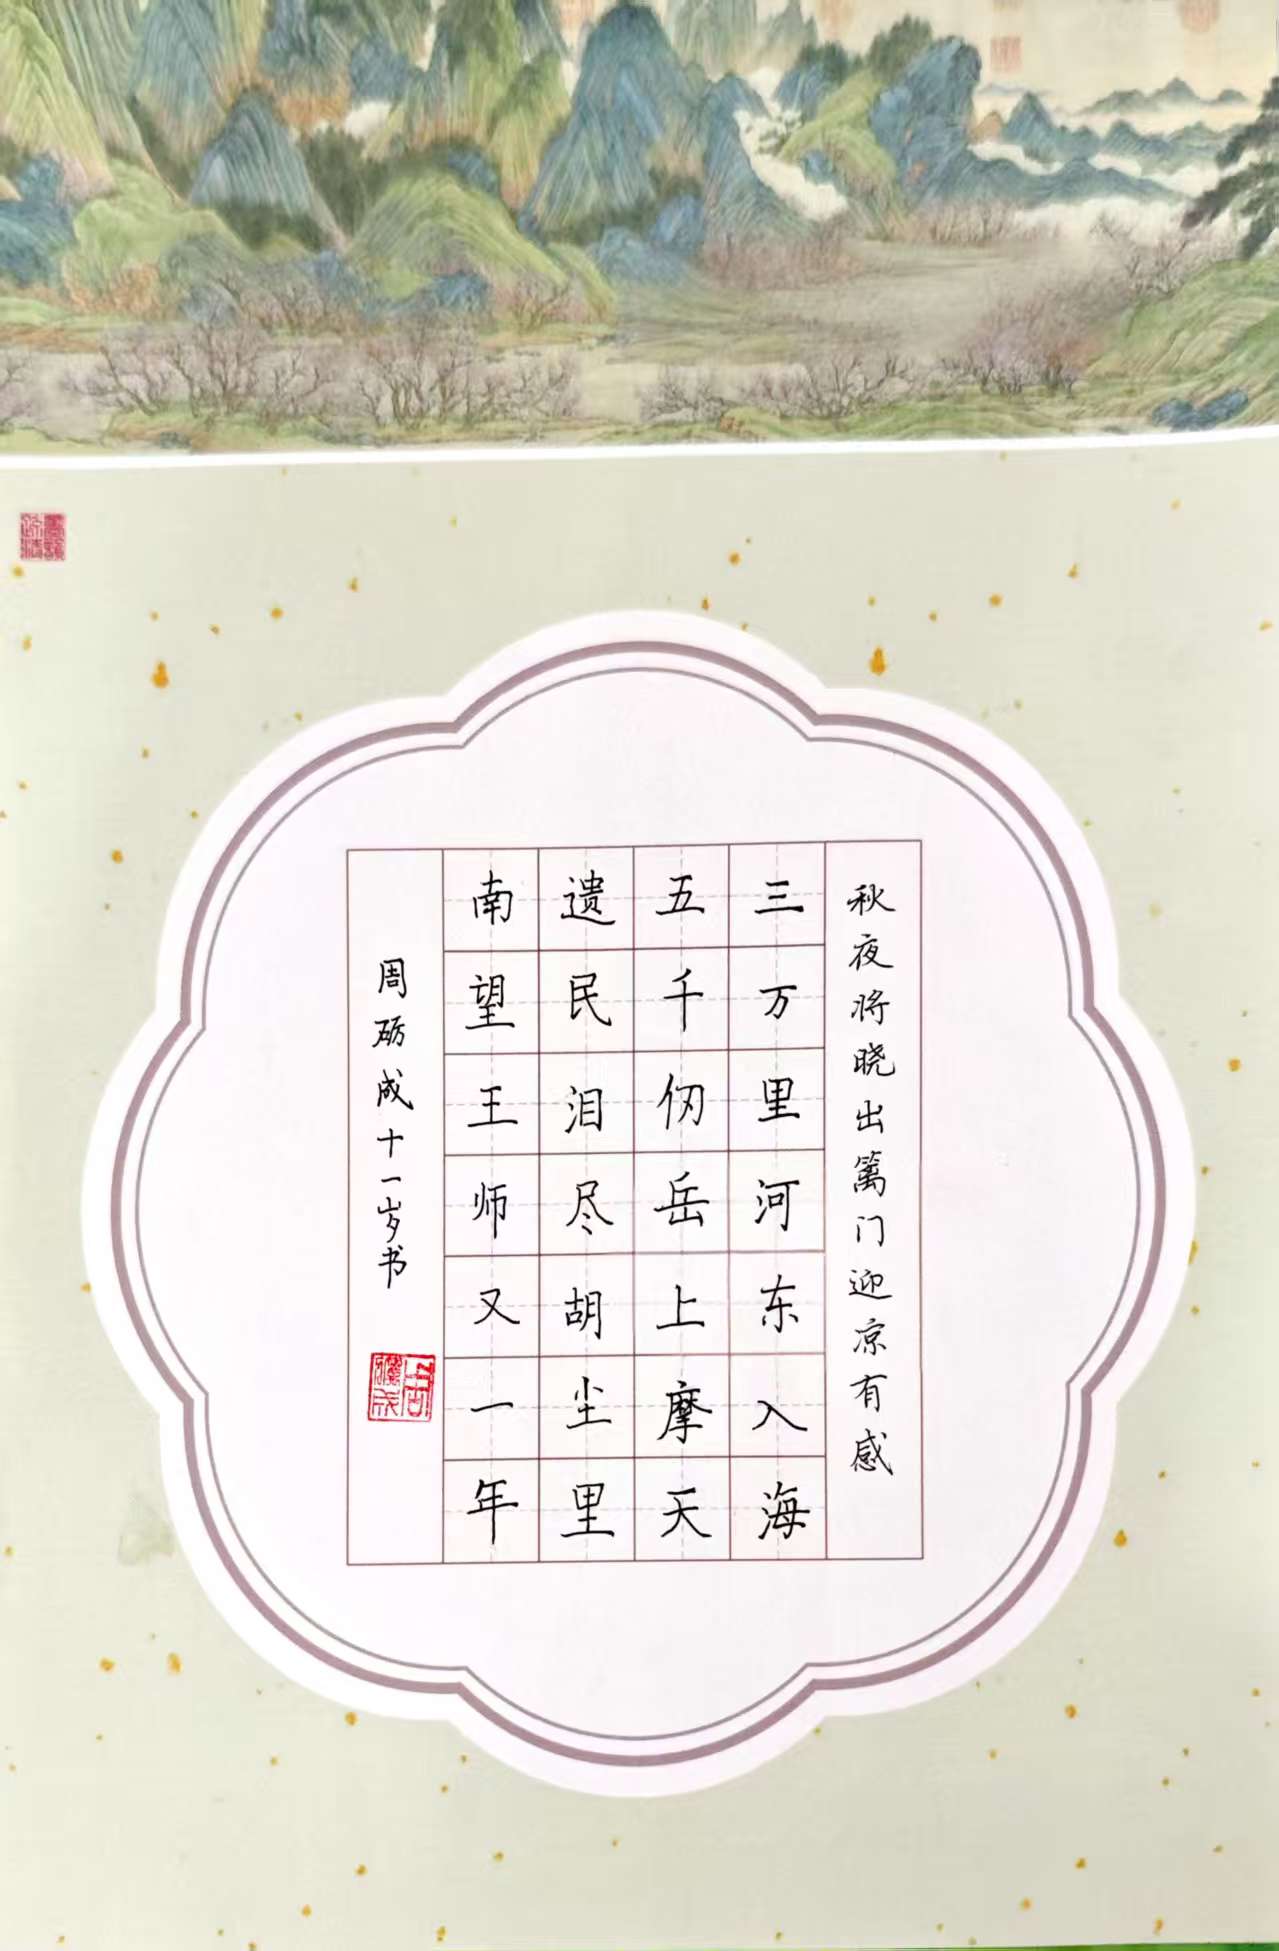 秋夜将晓出篱门迎凉有感
三万里河东入海
五千仞岳上摩天
遗民泪尽胡尘里
南望王师又一年
周砺成十一岁书